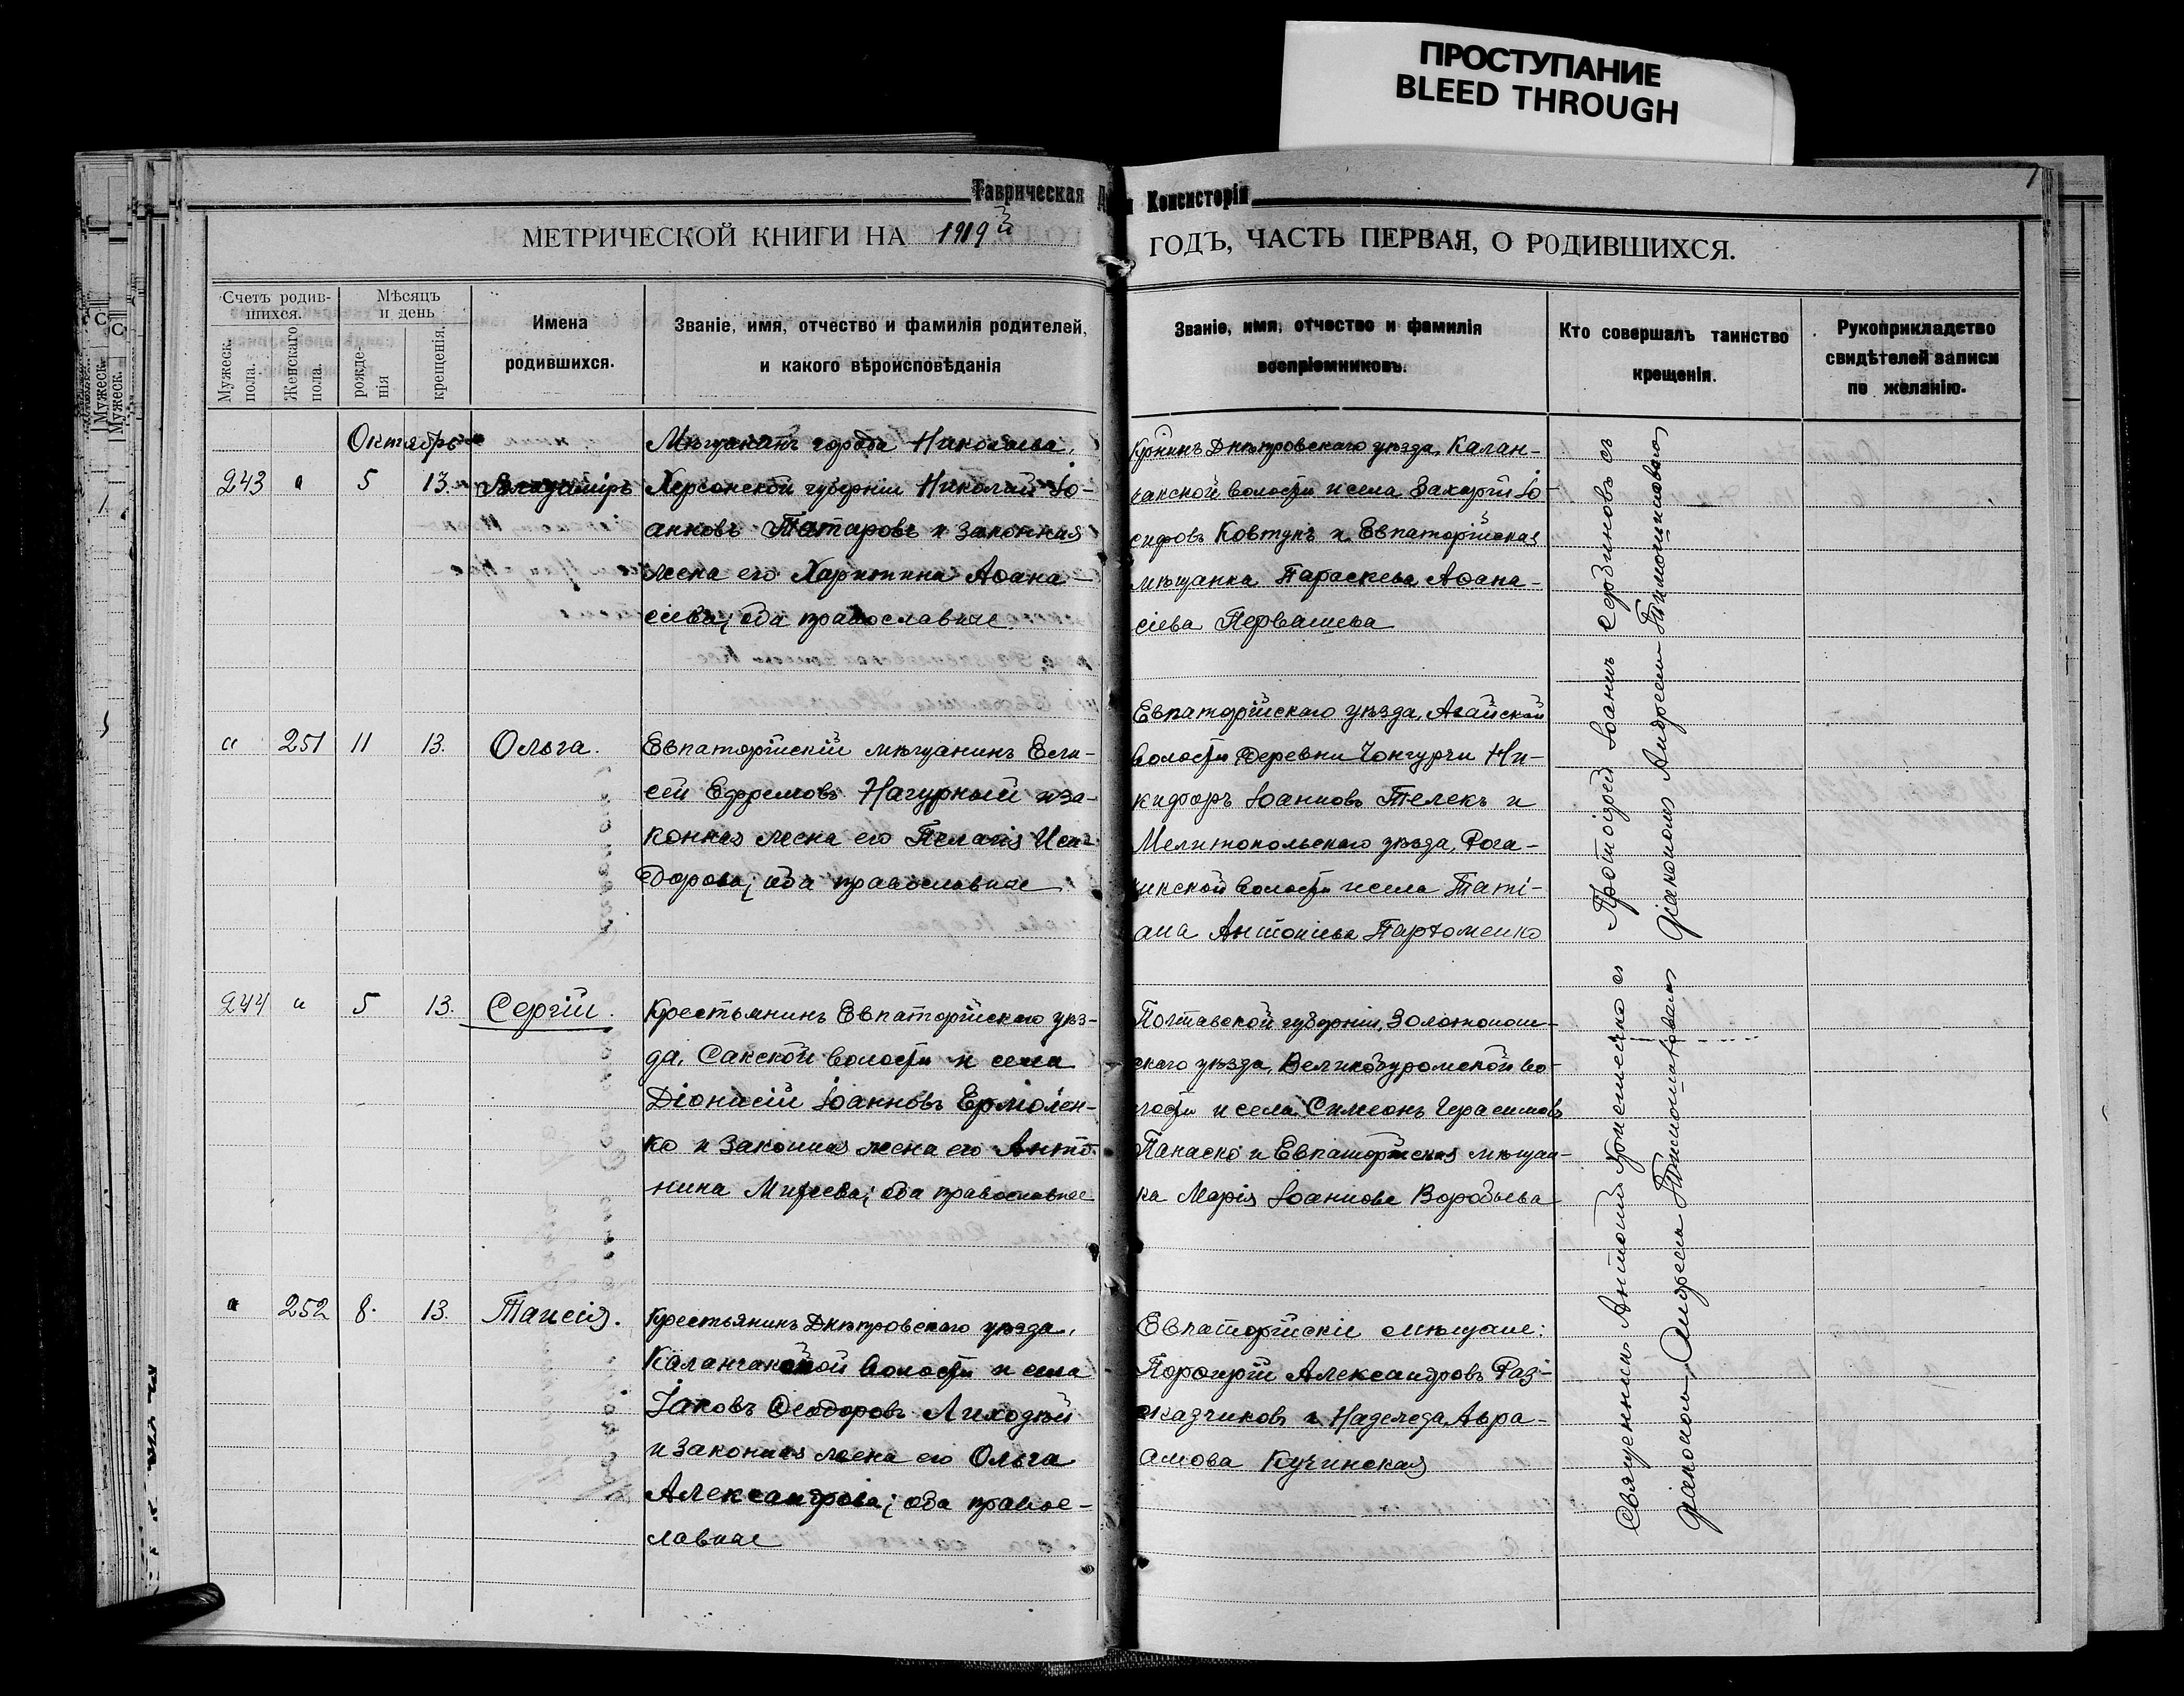 ПРОСТУПАНИЕ
BLEED THROUGH
Таврическая Консисторіи
МЕТРИЧЕСКОЙ КНИГИ НА 1919й
ГОДЪ, ЧАСТЬ ПЕРВАЯ, О РОДИВШИХСЯ.
Счетъ родив-
шихся.
Мужеск. пола.
Женскаго пола.
Мѣсяцъ
и день
рожде-
нія
крещенія.
Имена
родившихся.
Званіе, имя, отчество и фамилія родителей,
и какого вѣроисповѣданія
Званіе, имя, отчество и фамилія
воспріемниковъ.
Кто совершалъ таинство
крещенія.
Рукоприкладство
свидѣтелей записи
по желанію.
Октябрь
243 " 5 13. Владиміръ
Мѣщанинъ города Николаева,
Херсонской губерніи Николай Іо-
анновъ Татаровъ и законная
жена его Харитина Аѳана-
сіева; оба православные
Днѣпровскаго уѣзда, Калан-
чакской волости и села Захарій Іо-
сифовъ Ковтунъ и Евпаторійская
мѣщанка Параскева Аѳана-
сіева Первашева
" 251 11 13. Ольга.
Евпаторійскій мѣщанинъ Ели-
сей Ефремовъ Нагурный и за-
конная жена его Пелагія Иси-
дорова; оба православные
Евпаторійскаго уѣзда, Агайской
волости деревни Чонгурчи Ни-
кифоръ Іоанновъ Телекъ и
Мелитопольскаго уѣзда, Рога-
чикской волости и села Таті-
ана Антоніева Парѳоменко
244 " 5 13. Сергій.
Крестьянинъ Евпаторійскаго уѣз-
да, Сакской волости и села
Діонисій Іоанновъ Ермолен-
ко и законная жена его Анто-
нина оба православные
Полтавской губерніи, Золотонош-
скаго уѣзда, Великобуромской во-
лости и села Симеонъ Герасимовъ
Панаско и Евпаторійская мѣщан-
ка Марія Іоаннова Воробьева
" 252 8. 13. Таисія.
Крестьянинъ Днѣпровскаго уѣзда,
Каланчакской волости и села
Іаковъ Ѳеодоровъ Лиходѣй
и законная жена его Ольга
Александрова; оба правос-
лавные
Евпаторійскіе мѣщане:
Порфирій Александровъ Раз-
казчиковъ и Надежда Авра-
амова Кучинская
Протоіерей Іоаннъ Сербиновъ съ
діакономъ Андреемъ
Священникъ Антоній съ
діакономъ Андреемъ